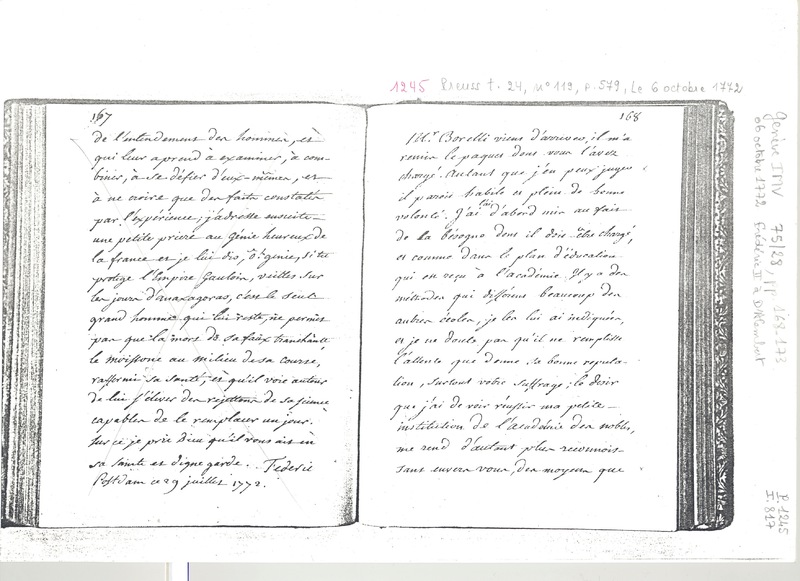 1245 Preuss t. 24, n° 119, p. 579, Le 6 octobre 1772
167
de l'entendement des hommes, et
qui leur aprend à examiner, à com-
biner, à se défier d'eux-mêmes, et
à ne croire que des faits constatés
par l'expérience; j'adresse ensuite
une petite priere au Génie heureux de
la france et je lui dis, ô! genie, si tu
protege l'Empire Gaulois, veilles sur
les jours d'anaxagoras, c'est le seul
grand homme qui lui reste, ne permet
pas que la mort de sa faux tranchante
le moissone au milieu de sa course,
raffermis sa santé, et qu'il voie autour
de lui s'élever des rejettons de sa science
capables de le remplacer un jour.
sur ce je prie Dieu qu'il vous ait en
sa sainte et digne garde. Féderic
Postdam ce 29 juillet 1772.
168
Mr. Borelli viens d'arriver, il m'a
remis le paquet dont vous l'avez
chargé. Autant que j'en peux juger
il parois habile et plein de bonne
volonté. J'ai lui d'abord mis au fait
de la bésogne dont il dois être chargé,
et comme dans le plan d'éducation
qui est reçu à l'académie. Il y a des
méthodes qui different beaucoup des
autres écoles, je les lui ai indiquées,
et je ne doute pas qu'il ne remplisse
l'attente que donne sa bonne reputa-
tion, surtout votre suffrage; le désir
que j'ai de voir réussir ma petite
institution de l'académie des nobles,
me rend d'autant plus reconnois-
sant envers vous, des moyens que
Genève IMV 75/88, pp. 168-173
06 octobre 1772 Frédéric II à D'Alembert
P. 1245
I. 817